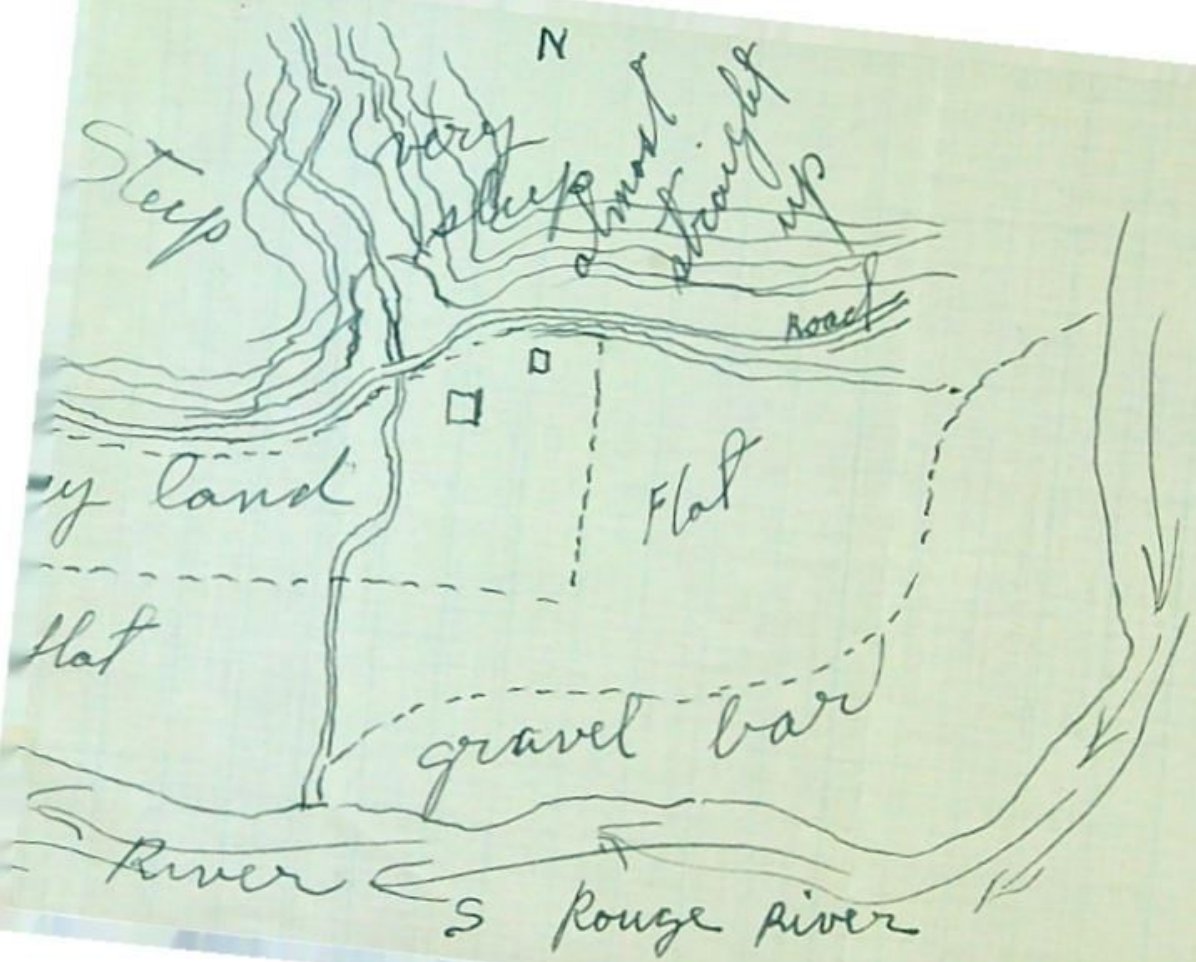 N
Steep
very
steep
almost
straight
up
Road
y land
Flat
flat
gravel bar
River
S Rouge River